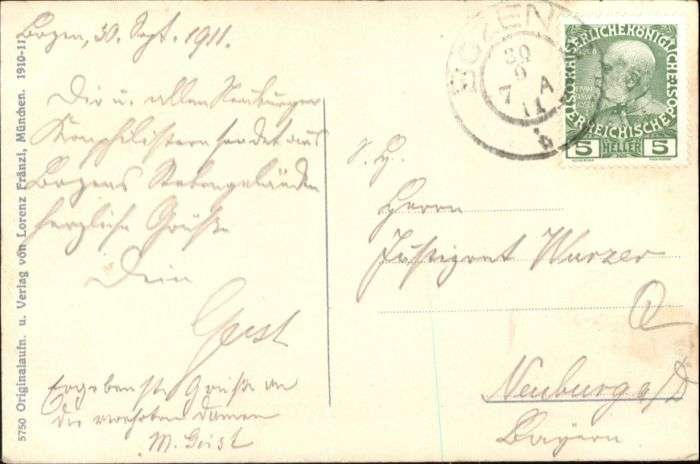 Bozen, 30. Sept. 1911.
Dir u. allen Neuburger
Konphilistern sendet aus
Bozens Rebengeländen
herzliche Grüße
Dein
Geist
Ergebenste Grüße an
die verehrten Damen
M. Geist
5750 Originalaufn. u. Verlag von Lorenz Fränzl, München. 1910-11
BOZEN
30
9
7 A
11
b
KAISERLICHE KÖNIGLICHE
ÖSTERREICHISCHE POST
5 HELLER 5
S. H.
Herrn
Justizrat Wurzer
Neuburg a/D
Bayern